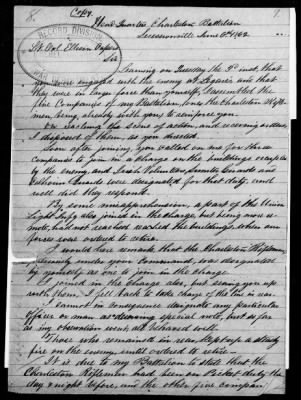 Copy
8.
1
Head Quarters Charleston Battalion
Secessionville June 6th 1862
Lt Col Ellison Capers
Sir
Learning on Tuesday the 3d inst that
you were engaged with the enemy at Legare's and that
they were in larger force than yourself, I assembled the
five Companies of my Battalion, (one the Charleston Rifle-
men, being already with you) to reinforce you.
On reaching the scene of action, and receiving orders,
I disposed of them as you directed.
Soon after joining, you called on me for three
Companies to join in a charge on the buildings occupied
by the enemy, and Irish Volunteers, Sumter Guards and
Calhoun Guards were designated for that duty, and
well did they respond.
By some misapprehension, a part of the Union
Light Infty also joined in the charge, but being more re-
mote, had not reached the buildings, when our
forces were ordered to retire.
I would here remark that the Charleston Riflemen,
previously under your command, was designated
by yourself as one to join in the charge.
I joined in the charge also, but seeing you up
with them, I fell back to take charge of the line in rear.
I cannot in consequence designate any particular
officer or man as deserving special note, but so far
as my observation went, all behaved well.
Those who remained in rear, kept up a steady
fire on the enemy, until ordered to retire—
It is due to my Battalion to state that the
Charleston Riflemen had been on Picket duty the
day & night before, and the other five compani